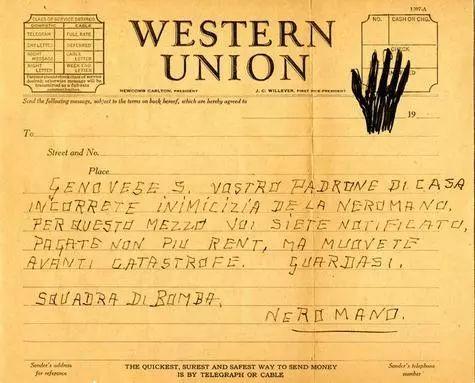 1207-A
CLASS OF SERVICE DESIRED
DOMESTIC CABLE
TELEGRAM FULL RATE
DAY LETTER DEFERRED
NIGHT MESSAGE CABLE LETTER
NIGHT LETTER WEEK END LETTER
WESTERN UNION
NEWCOMB CARLTON, PRESIDENT J. C. WILLEVER, FIRST VICE-PRESIDENT
NO. CASH OR CHG.
CHECK
Send the following message, subject to the terms on back hereof, which are hereby agreed to
19
To
Street and No.
Place
GENOVESE S. VOSTRO PADRONE DI CASA
INCORRETE INIMICIZIA DE LA NEROMANO.
PER QUESTO MEZZO VOI SIETE NOTIFICATO,
PAGATE NON PIU RENT, MA MUOVETE
AVANTI CATASTROFE. GUARDASI.
SQUADRA DI BOMBA.
NEROMANO.
Sender's address for reference
THE QUICKEST, SUREST AND SAFEST WAY TO SEND MONEY
IS BY TELEGRAPH OR CABLE
Sender's telephone number